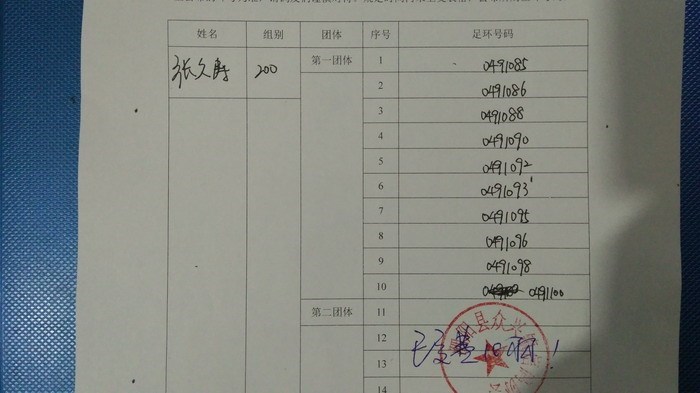 姓名 组别 团体 序号 足环号码
张久寿 200 第一团体 1 0491085
2 0491086
3 0491088
4 0491090
5 0491092
6 0491093
7 0491095
8 0491096
9 0491098
10 0491100
第二团体 11
12
13
14
县众兴